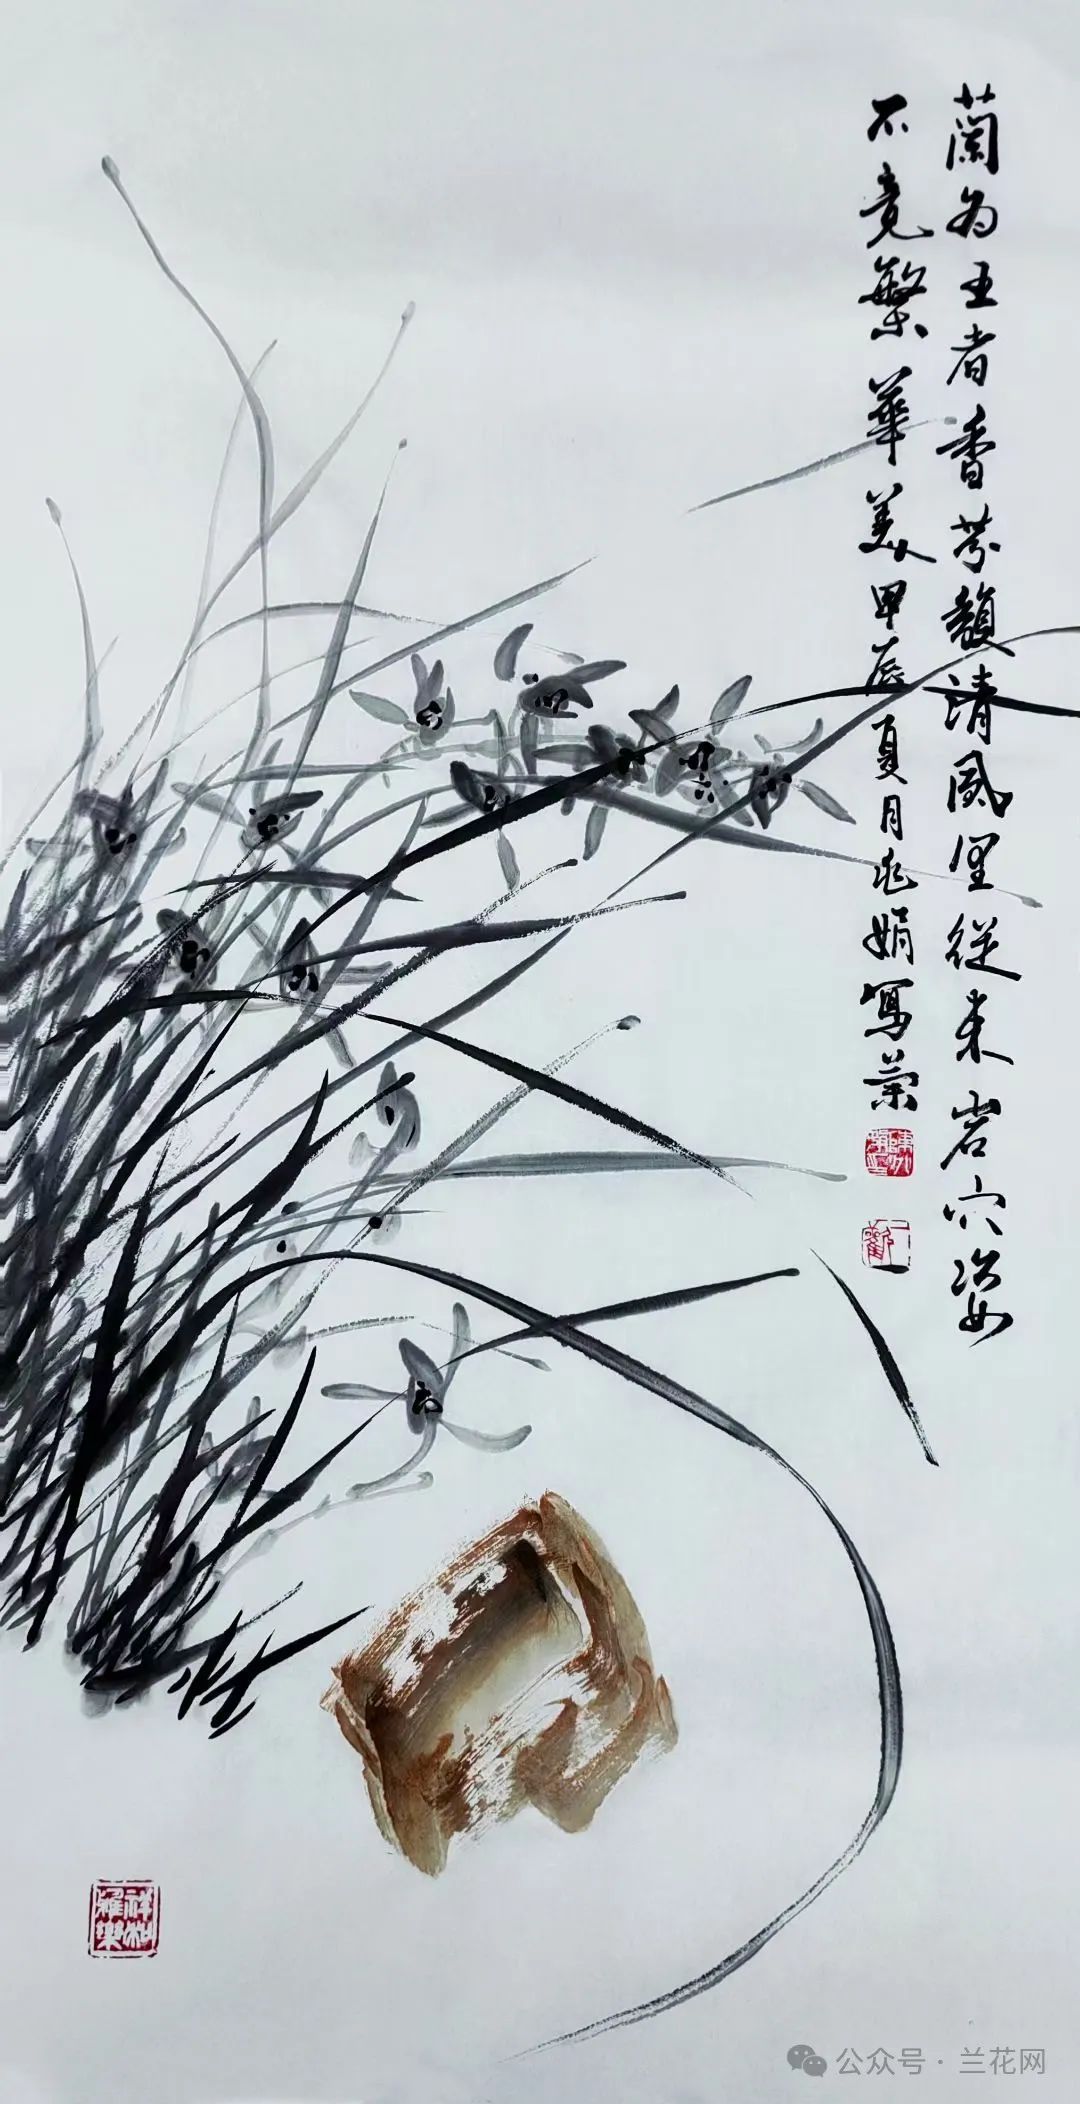 蘭為王者香芬馥清風里從来岩穴姿
不竞繁華美甲辰夏月兆娟寫蘭
祥和雅樂
公众号·兰花网